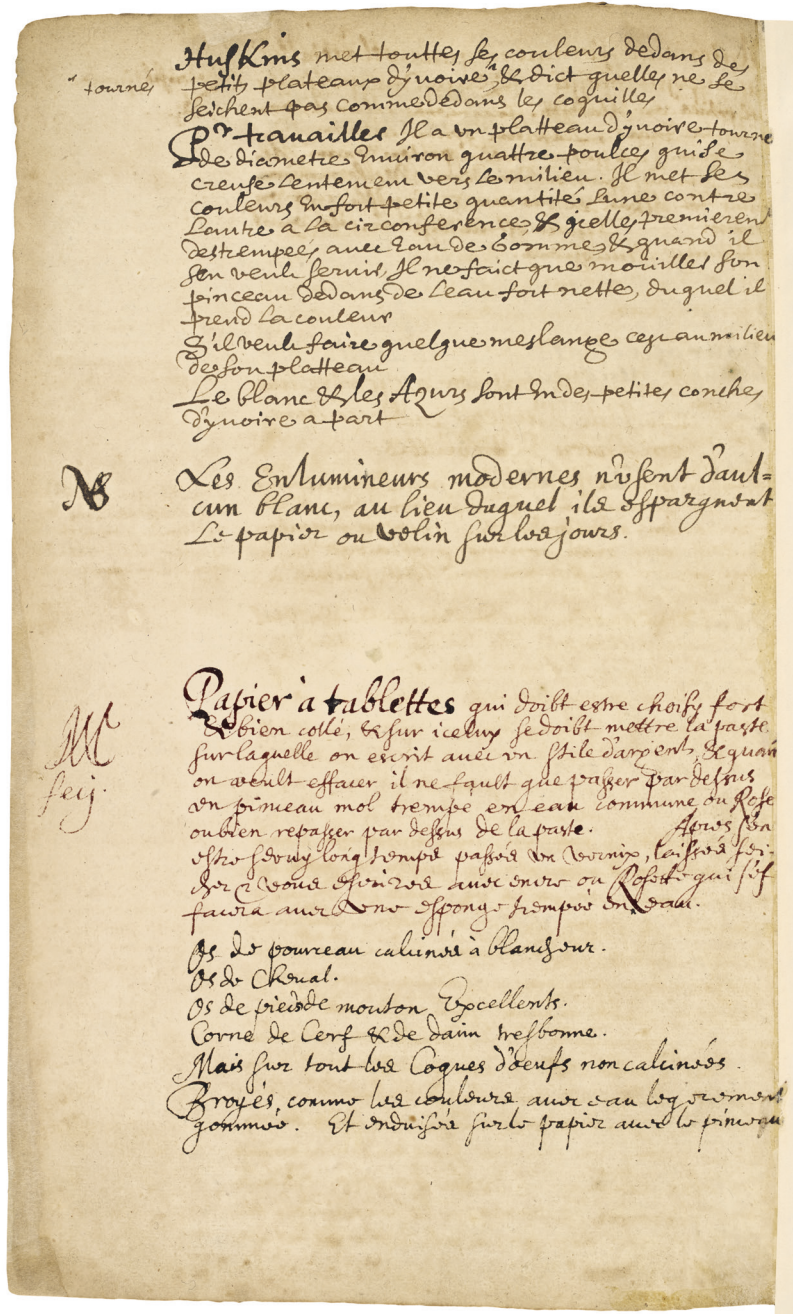 Huskins met touttes ses couleurs dedans des
" tournés
petits plateaux d'yuoire", & dict quelles ne se
seichent pas comme dedans les coquilles
Pr trauailler Il a vn platteau d'yuoire tourne
de diametre Enuiron quattre poulces qui se
creuse Lentement vers Le milieu. Il met ses
couleurs En fort petite quantité Lune contre
Lautre a La circonference, & jcelles premierem
destrempees auec Eau de Gomme, & quand il
sen veult seruir, Il ne faict que mouiller son
pinceau dedans de Leau fort nette, duquel il
prend La couleur
S'il veult faire quelque meslange cest au milieu
de son platteau
Le blanc & les Azurs sont En des petites conches
d'yuoire a part
NB
Les Enlumineurs modernes n'vsent d'aul=
cun blanc, au lieu duquel ils espargnent
Le papier ou velin sur les jours.
Papier a tablettes qui doibt estre choisy fort
& bien collé, & sur iceluy se doibt mettre la paste
sur laquelle on escrit auec vn stile d'argent, & quan
on veult effacer il ne fault que passer par dessus
vn pinceau mol trempe en eau commune, ou Rose
ou bien repasser par dessus de la paste. Apres sen
estre seruy long temps passés vn vernix, laissés sei-
cher & vous escrires auec encre ou Rosette qui s'ef
facera auec vne esponge trempee en eau.
Os de pourceau calcinés à blancheur.
Os de Cheual.
Os de pieds de mouton Excellents.
Corne de Cerf & de daim tresbonne.
Mais sur tout les Coques d'oeufs non calcinées.
Broyés, comme les couleurs auec eau legerement
gommée. Et enduisés sur le papier auec le pinceau